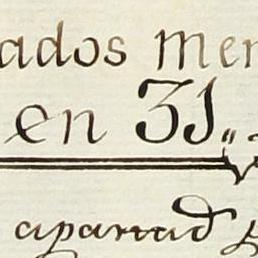 ados Men
en 31.
apartad